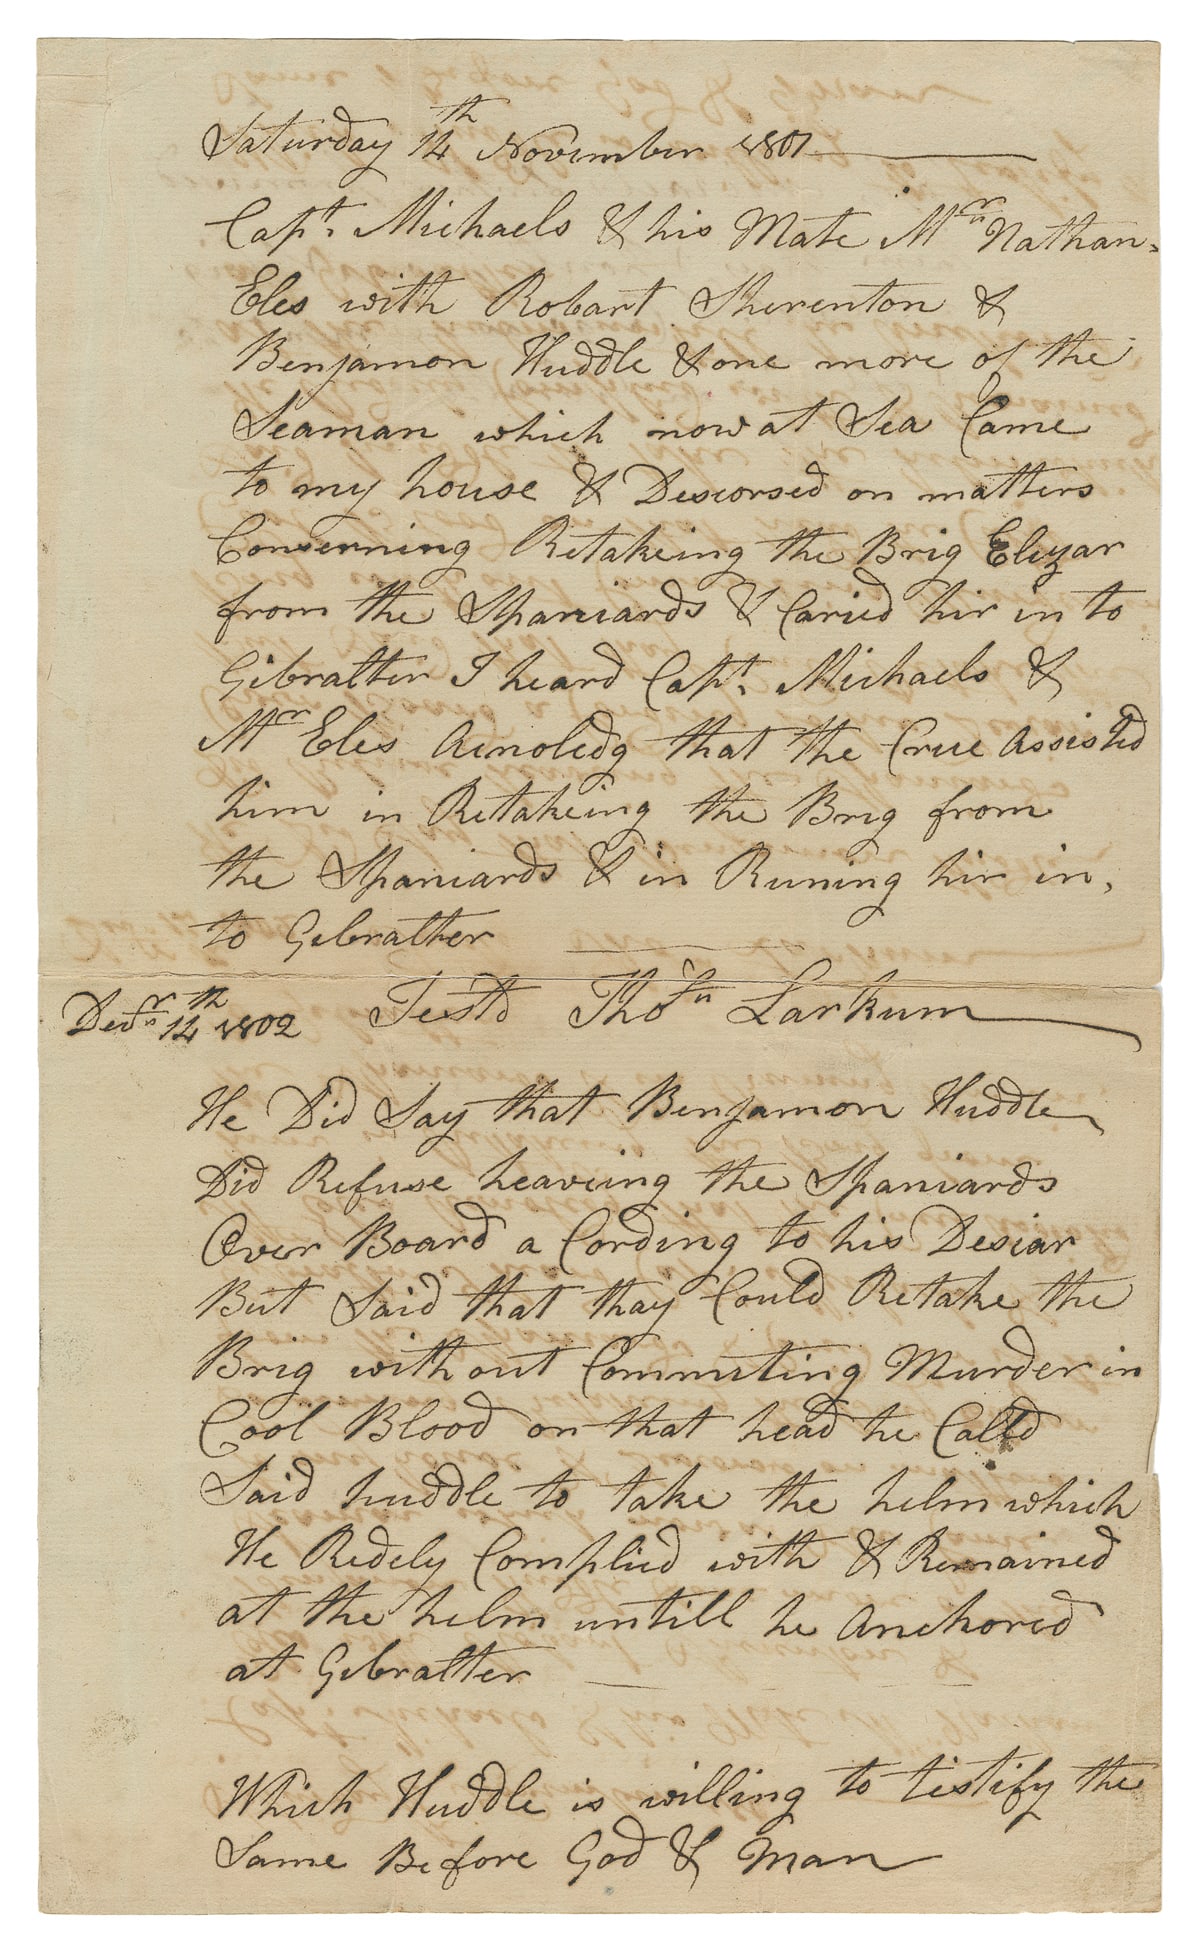 Saturday 14th November 1801
Capt. Michaels & his Mate Mr. Nathan-
Eles with Robart Sherenton &
Benjamon Huddle & one more of the
Seaman which now at Sea Came
to my house & Descorsed on matters
Conserning Retakeing the Brig Elizar
from the Spaniards & Caried hir in to
Gibraltter I heard Capt. Michaels &
Mr Eles Acnoledg that the Crue Assisted
him in Retakeing the Brig from
the Spaniards & in Runing hir in,
to Gebraltter
Decr. 14th 1802 Testd Thos Larkum
He Did Say that Benjamon Huddle
Did Refuse heaveing the Spaniards
Over Board a Cording to his Desiar
But Said that thay Could Retake the
Brig without Commiting Murder in
Cool Blood on that head he Calld
Said huddle to take the helm which
He Redely Complied with & Remained
at the helm untill he Anchored
at Gebraltter
Which Huddle is willing to testify the
Same Before God & Man